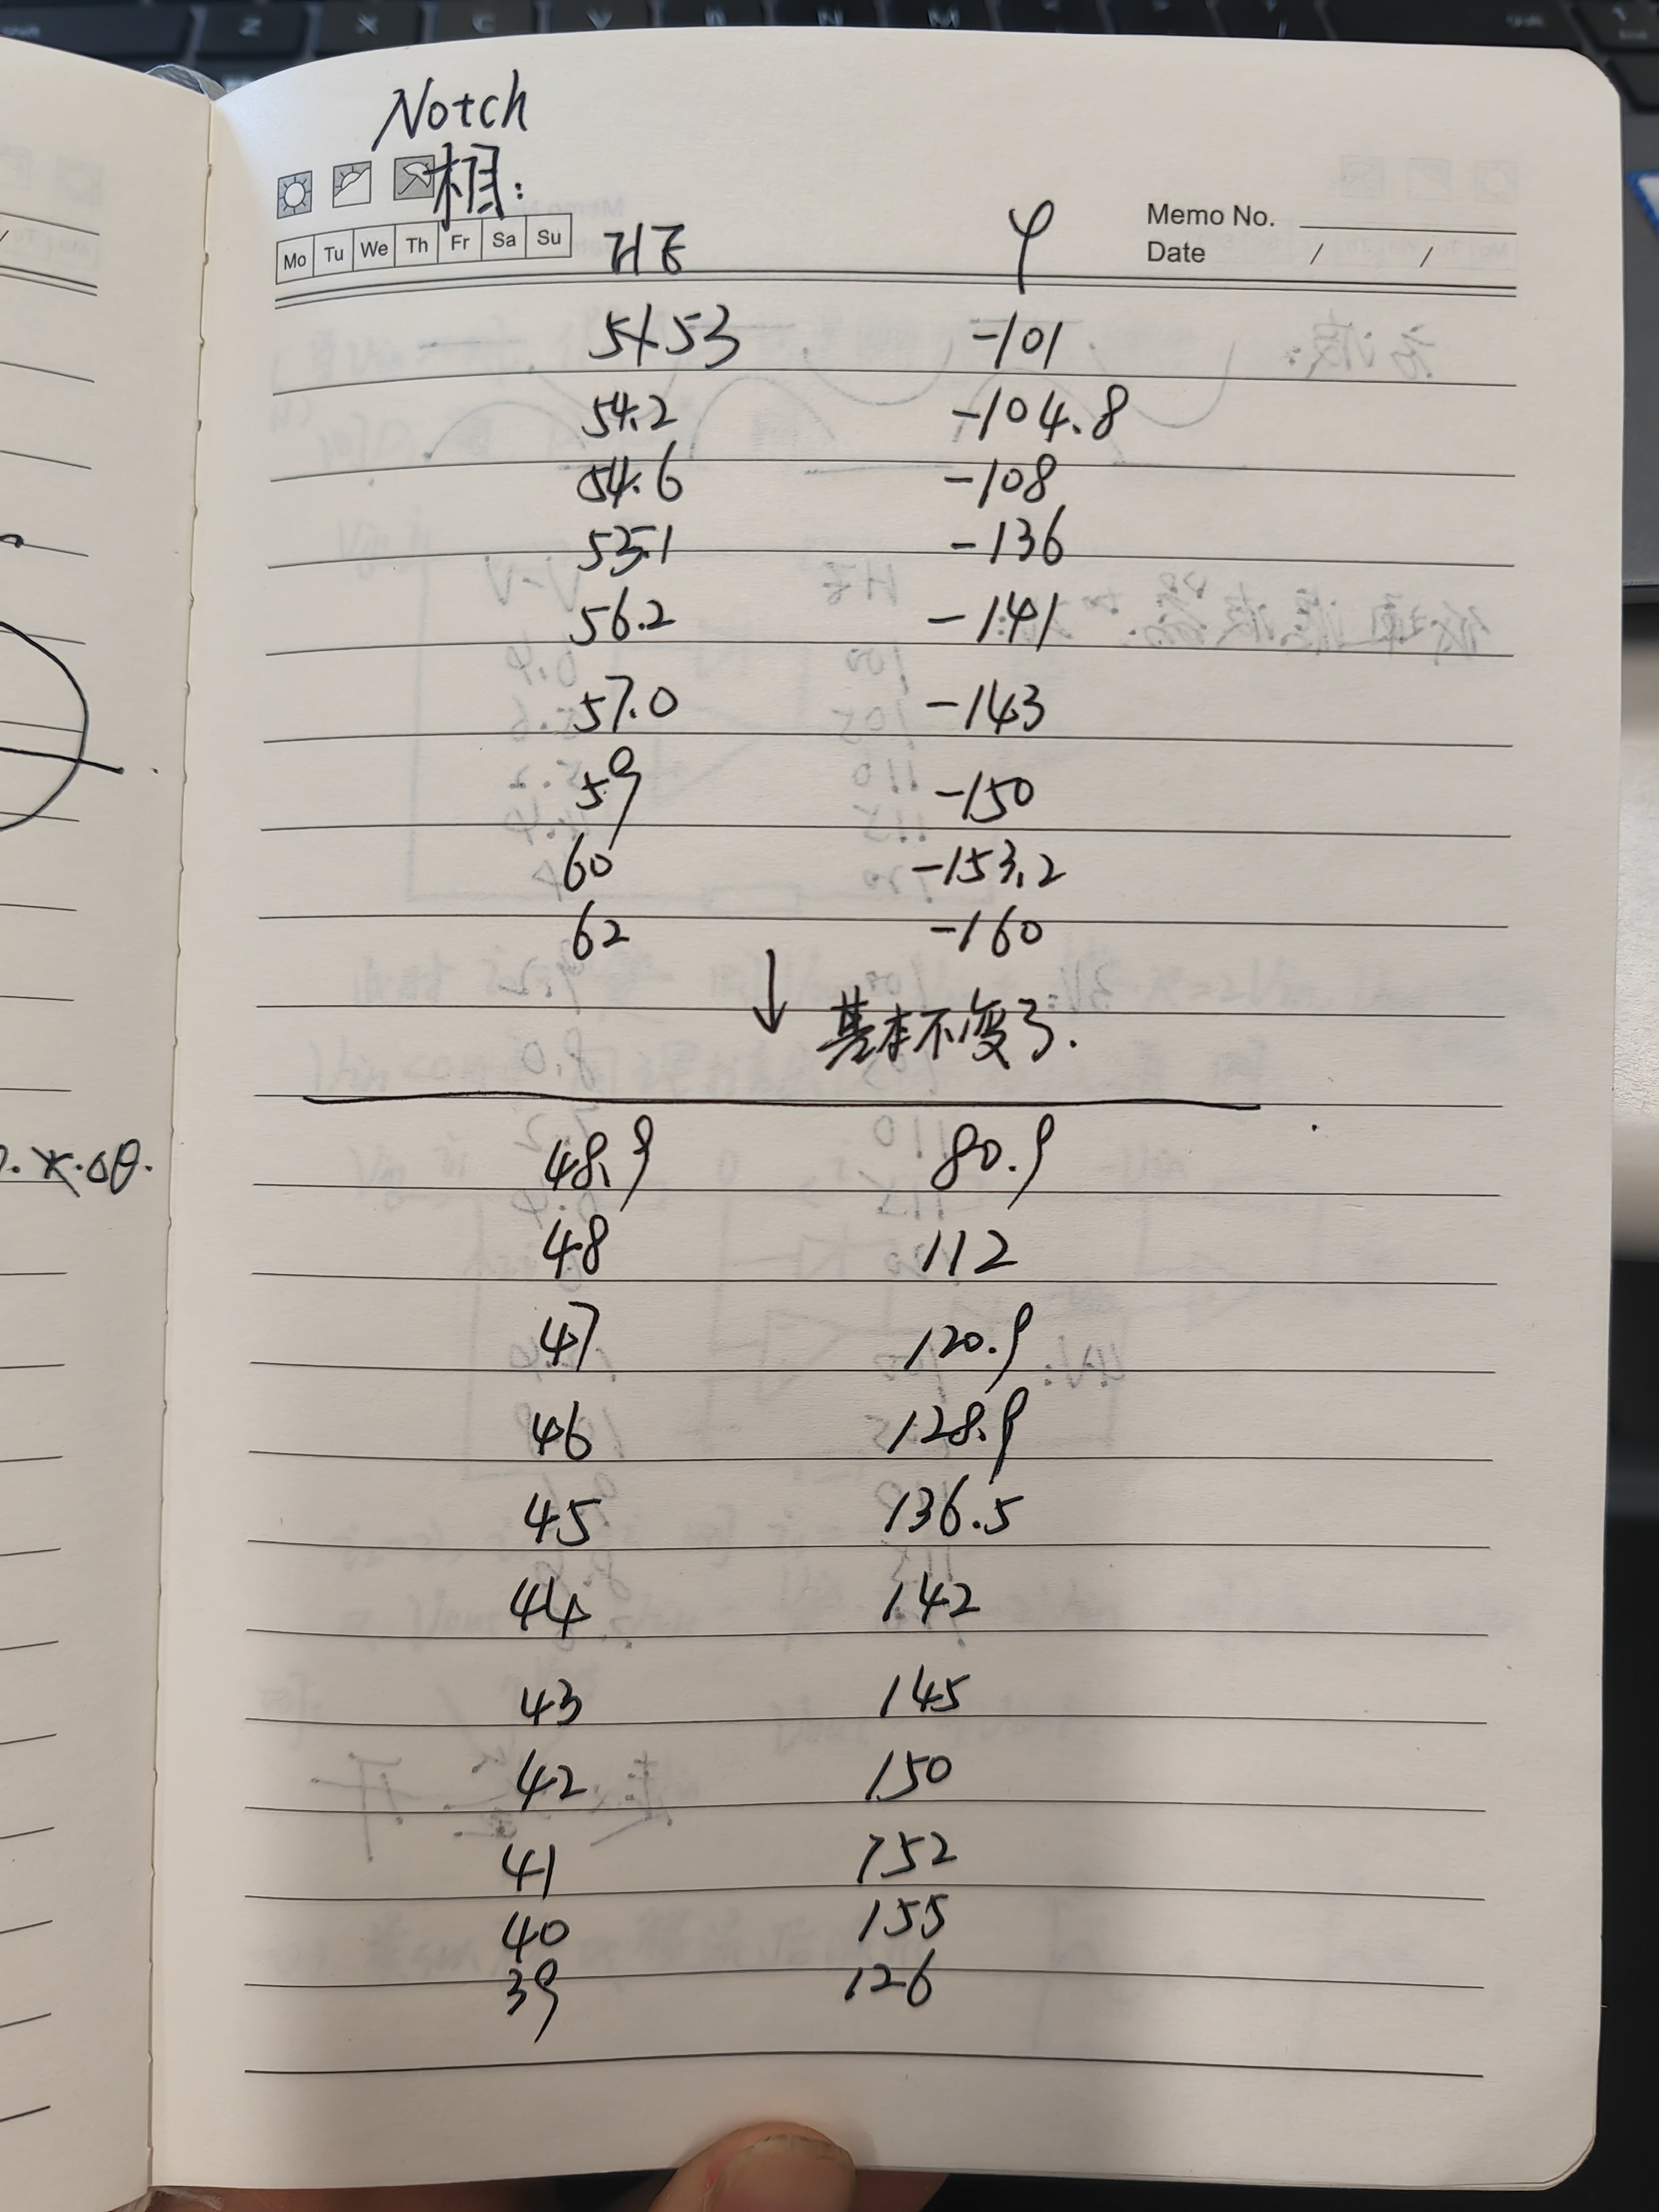 Notch
相:
Mo Tu We Th Fr Sa Su
HZ φ
Memo No.
Date / /
53 -101
54.2 -104.8
54.6 -108
55.1 -136
56.2 -141
57.0 -143
59 -150
60 -153.2
62 -160
↓ 基本不变了.
48.9 80.9
48 112
47 120.9
46 128.9
45 136.5
44 142
43 145
42 150
41 152
40 155
39 126